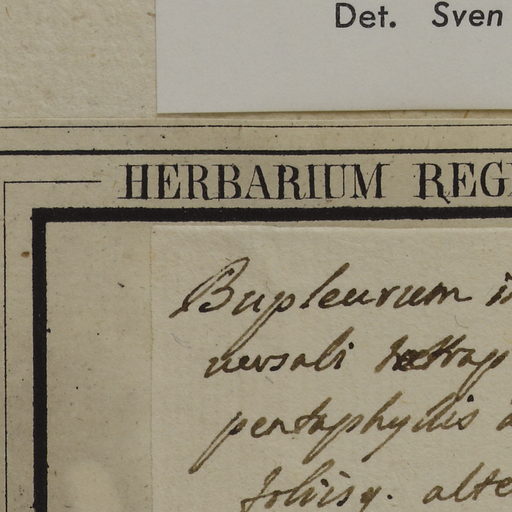 Det. Sven
HERBARIUM REG
Bupleurum
versali tetrap
pentaphyllis
foliisq. alte